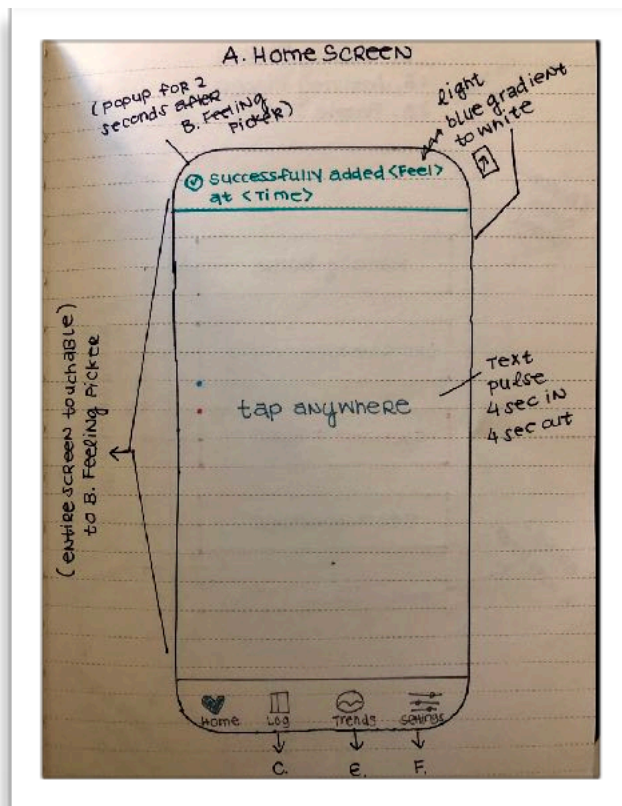 A. Home Screen
(popup for 2
seconds after
B. Feeling
Picker)
light
blue gradient
to white
Successfully added <Feel>
at <Time>
(entire screen touchable)
to B. Feeling Picker
tap anywhere
Text
pulse
4 sec in
4 sec out
Home Log Trends Settings
C. E. F.